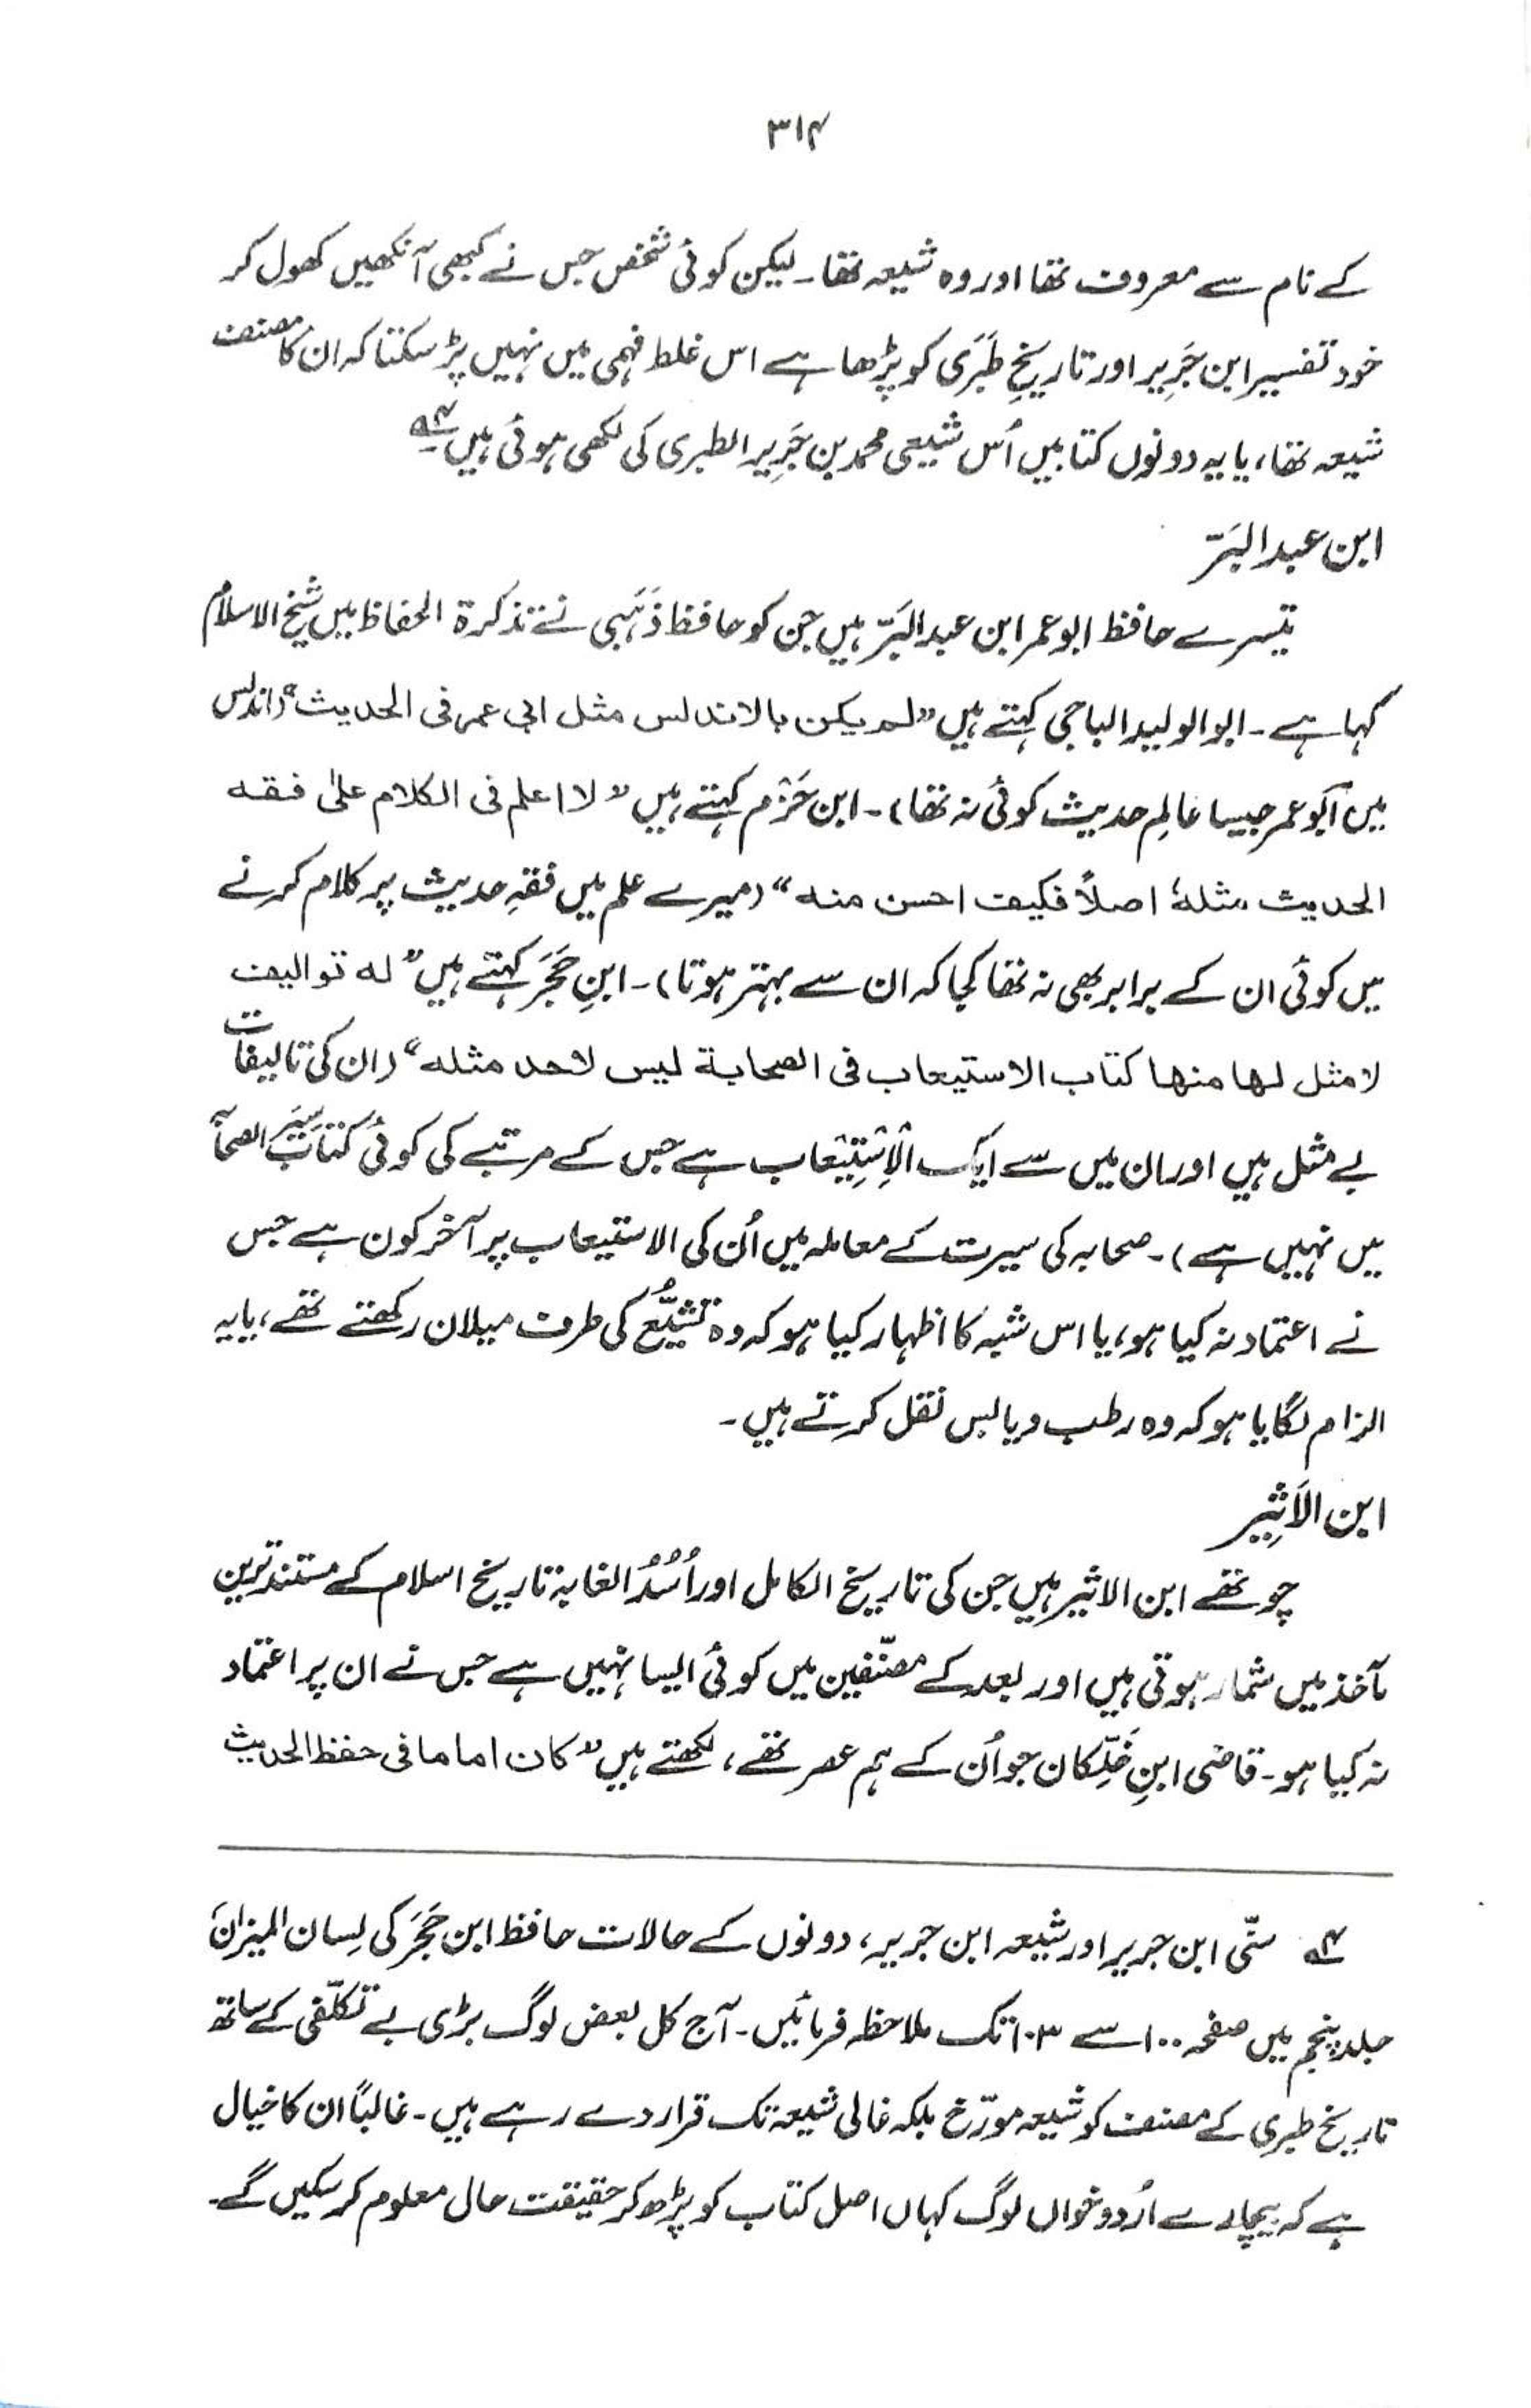 ۳۱۴
کے نام سے معروف تھا اور وہ شیعہ تھا۔ لیکن کوئی شخص جس نے کبھی آنکھیں کھول کر
خود تفسیر ابن جَرِیر اور تاریخِ طَبَری کو پڑھا ہے اس غلط فہمی میں نہیں پڑ سکتا کہ ان کا مصنف
شیعہ تھا، یا یہ دونوں کتابیں اُس شیعی محمد بن جَرِیر الطبری کی لکھی ہوئی ہیں۔؎۴
ابن عبدالبَرّ
تیسرے حافظ ابوعمر ابن عبدالبَرّ ہیں جن کو حافظ ذَہَبی نے تذکرۃ الحفاظ میں شیخ الاسلام
کہا ہے۔ ابوالولید الباجی کہتے ہیں ”لم یکن بالاندلس مثل ابی عمر فی الحدیث“ (اندلس
میں ابوعمر جیسا عالِم حدیث کوئی نہ تھا)۔ ابن حَزْم کہتے ہیں ”لا اعلم فی الکلام علیٰ فقہ
الحدیث مثلہٗ اصلاً فکیف احسن منہ“ (میرے علم میں فقہِ حدیث پر کلام کرنے
میں کوئی ان کے برابر بھی نہ تھا کجا کہ ان سے بہتر ہوتا)۔ ابنِ حَجَر کہتے ہیں ”لہ توالیف
لا مثل لھا منھا کتاب الاستیعاب فی الصحابۃ لیس لاحد مثلہ“ (ان کی تالیفات
بے مثل ہیں اور ان میں سے ایک الْاِسْتِیْعاب ہے جس کے مرتبے کی کوئی کتاب سِیَر الصحابہ
میں نہیں ہے)۔ صحابہ کی سیرت کے معاملہ میں اُن کی الاستیعاب پر آخر کون ہے جس
نے اعتماد نہ کیا ہو، یا اس شبہ کا اظہار کیا ہو کہ وہ تَشَیُّع کی طرف میلان رکھتے تھے، یا یہ
الزام لگایا ہو کہ وہ رطب و یابس نقل کرتے ہیں۔
ابن الاَثِیر
چوتھے ابن الاثیر ہیں جن کی تاریخ الکامل اور اُسْدُ الغابہ تاریخ اسلام کے مستند ترین
مآخذ میں شمار ہوتی ہیں اور بعد کے مصنّفین میں کوئی ایسا نہیں ہے جس نے ان پر اعتماد
نہ کیا ہو۔ قاضی ابنِ خَلِّکان جو اُن کے ہم عصر تھے، لکھتے ہیں ”کان اماما فی حفظ الحدیث
؎۴ سنّی ابن جریر اور شیعہ ابن جریر، دونوں کے حالات حافظ ابن حَجَر کی لِسان المیزان،
جلد پنجم میں صفحہ ۱۰۰ سے ۱۰۳ تک ملاحظہ فرمائیں۔ آج کل بعض لوگ بڑی بے تکلّفی کے ساتھ
تاریخ طبری کے مصنف کو شیعہ مورّخ بلکہ غالی شیعہ تک قرار دے رہے ہیں۔ غالباً ان کا خیال
ہے کہ بیچارے اُردو خواں لوگ کہاں اصل کتاب کو پڑھ کر حقیقت حال معلوم کر سکیں گے۔